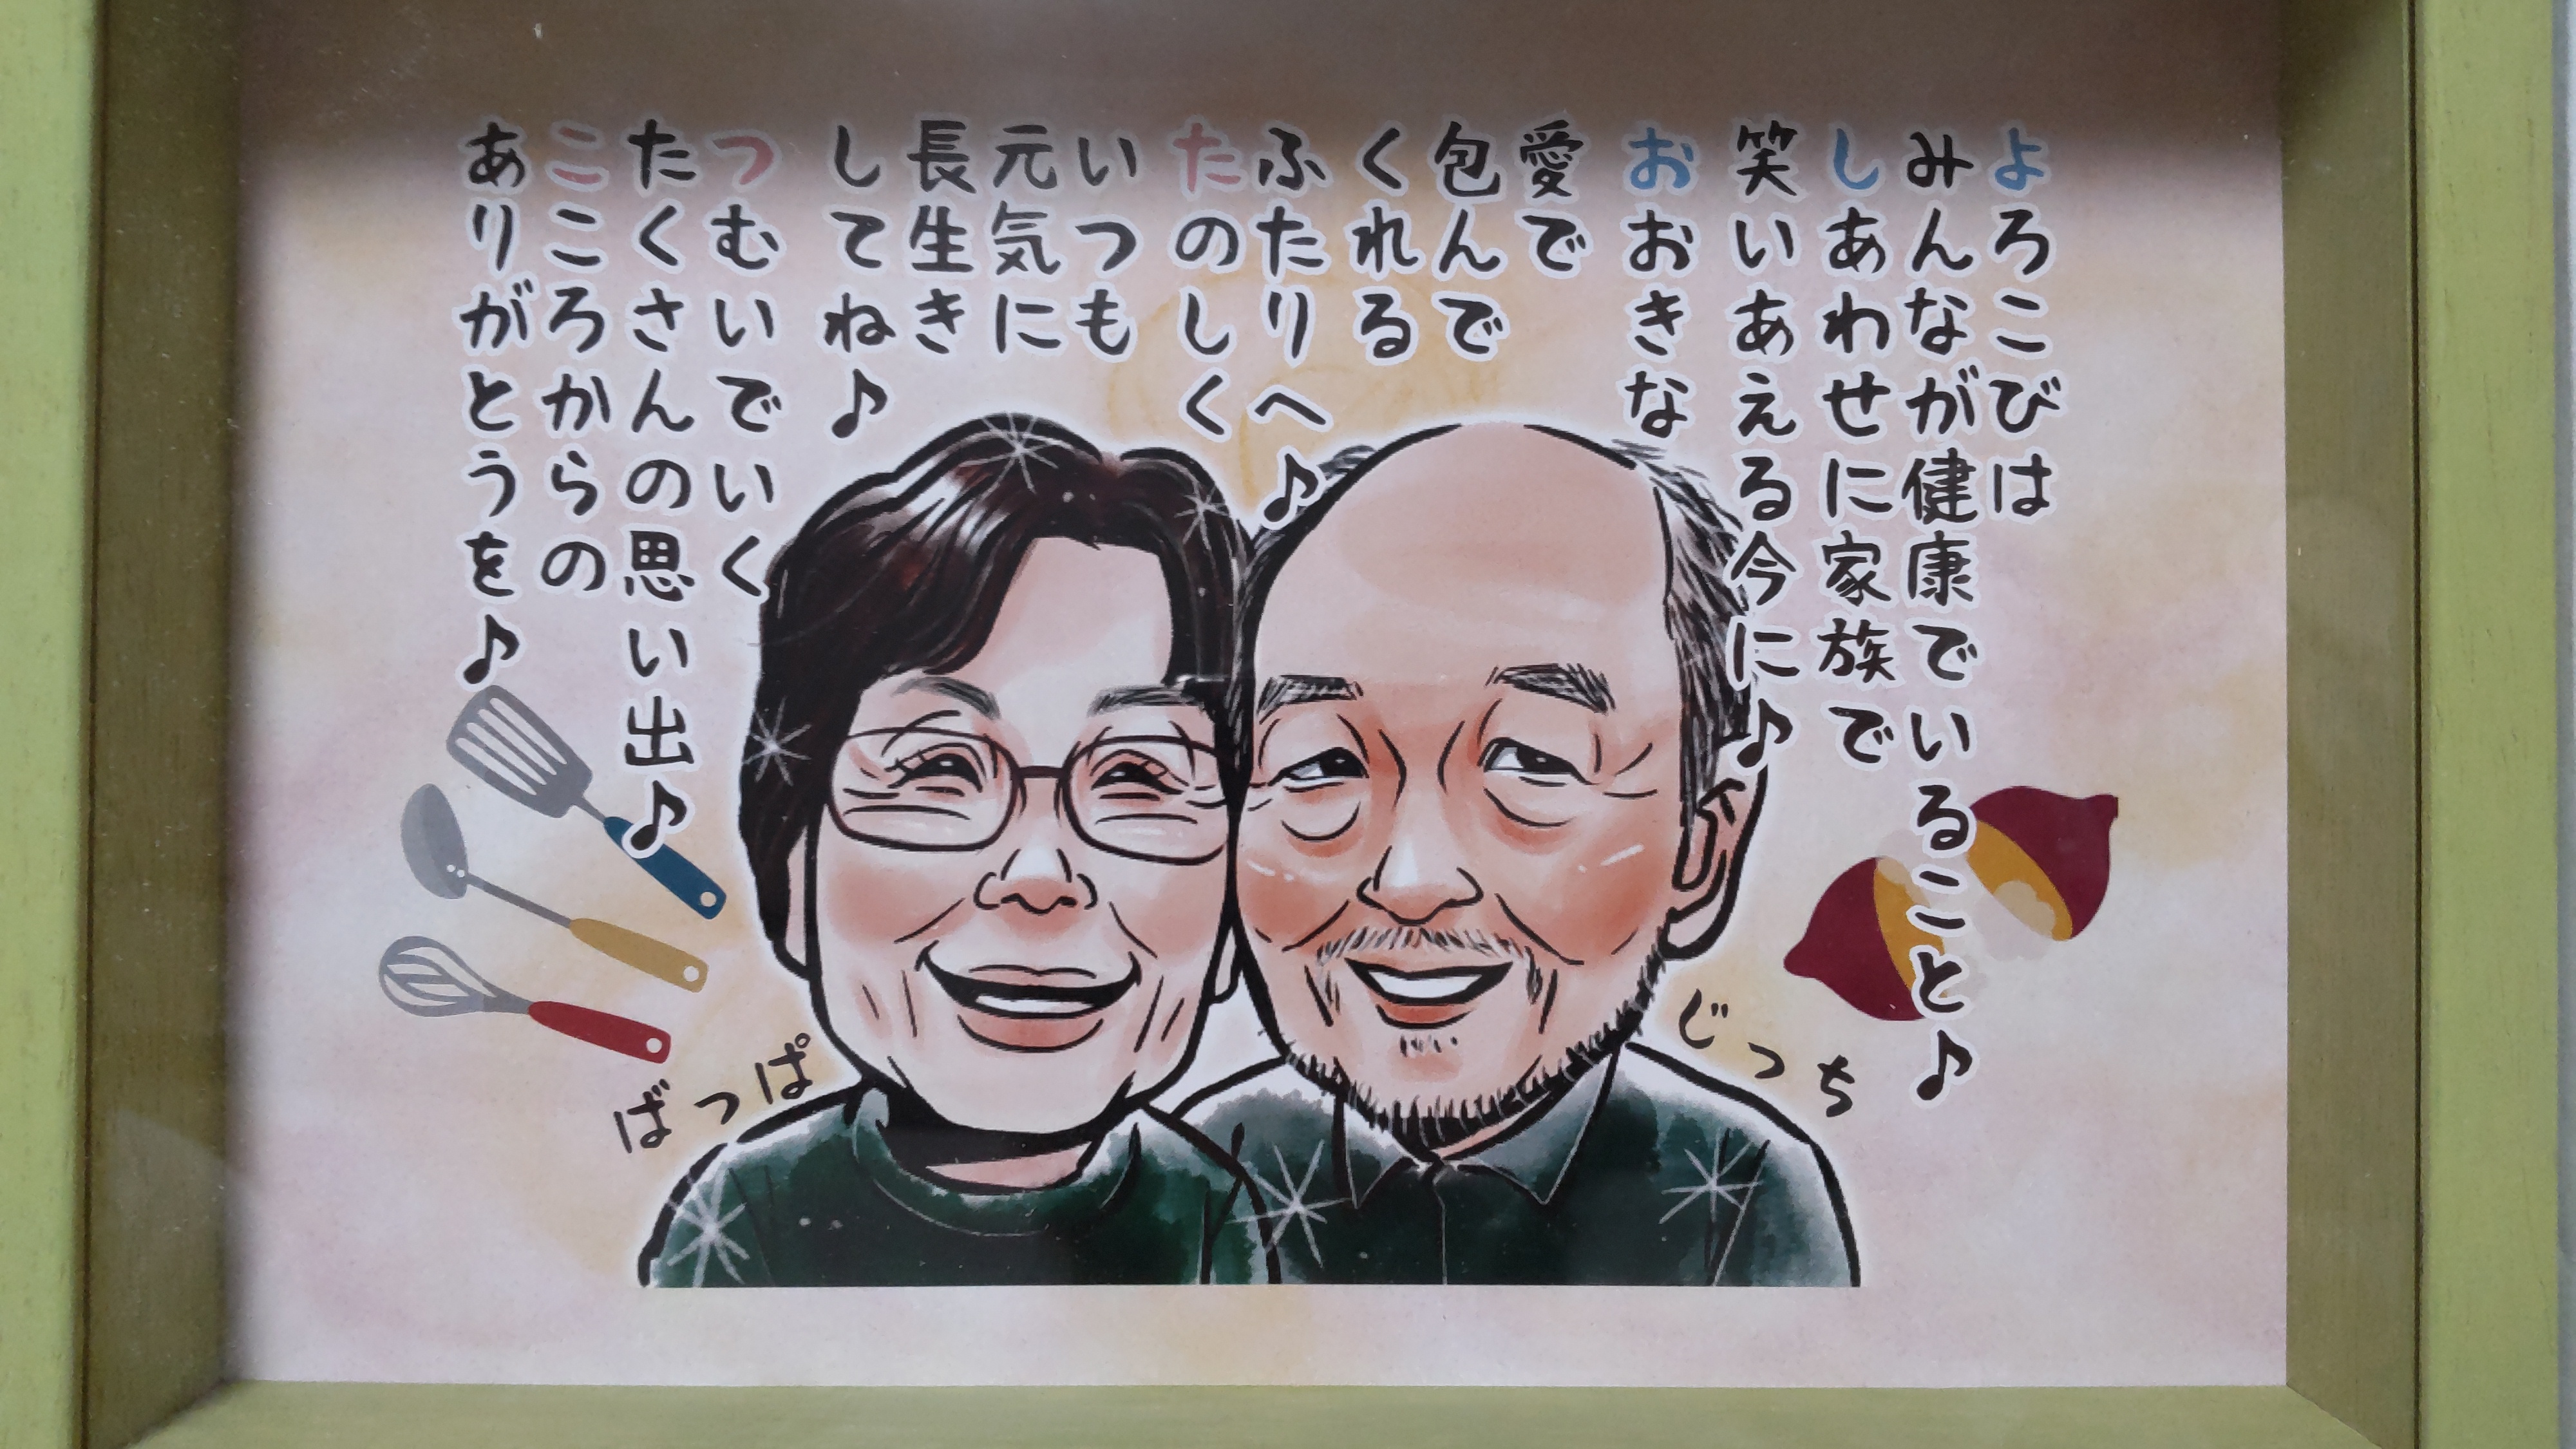 よろこびは
みんなが健康でいること♪
しあわせに家族で
笑いあえる今に♪
おおきな
愛で
包んで
くれる
ふたりへ♪
たのしく
いつも
元気に
長生き
してね♪
つむいでいく
たくさんの思い出♪
こころからの
ありがとうを♪
じっち
ばっぱ